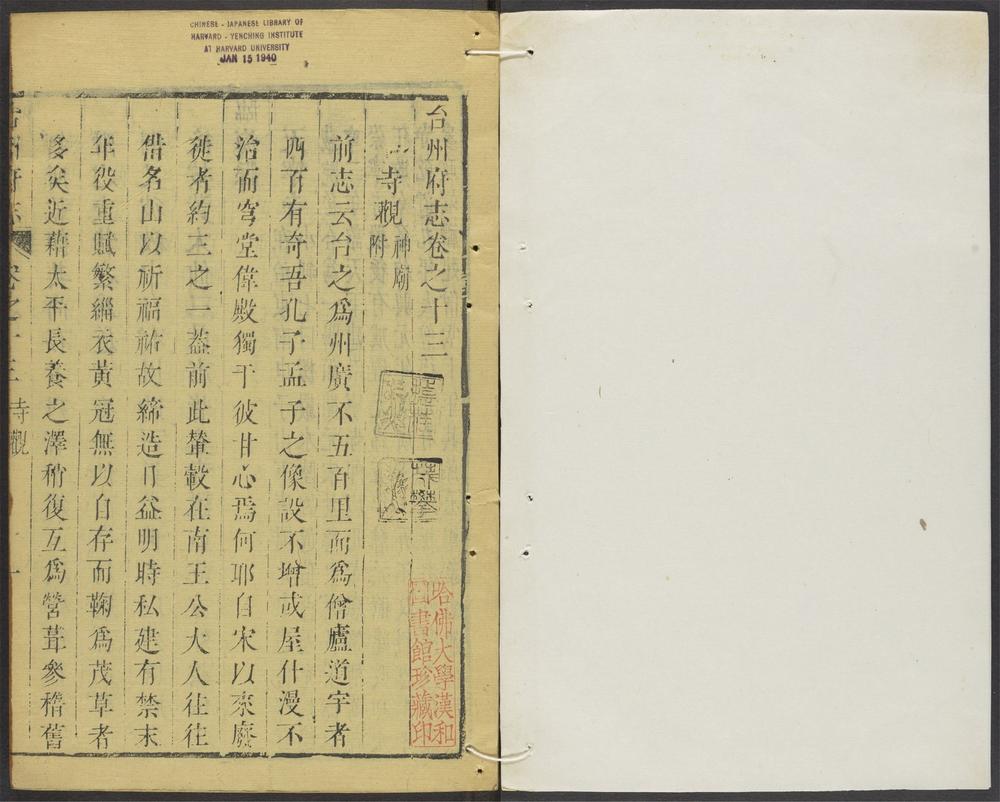 CHINESE - JAPANESE LIBRARY OF
HARVARD - YENCHING INSTITUTE
AT HARVARD UNIVERSITY
JAN 15 1940
台州府志卷之十三
寺觀
神廟
附
前志云台之爲州廣不五百里而爲僧廬道宇者
四百有奇吾孔子孟子之像設不增或屋什漫不
治而穹堂偉殿獨于彼甘心焉何耶自宋以來廢
徙者約三之一葢前此輦轂在南王公大人往往
借名山以祈福祐故締造日益明時私建有禁末
年役重賦繁緇衣黃冠無以自存而鞠爲茂草者
多矣近藉太平長養之澤稍復互爲營葺參稽舊
台州府志
卷之十三
寺觀
一
哈佛大學漢和
圖書館珍藏印